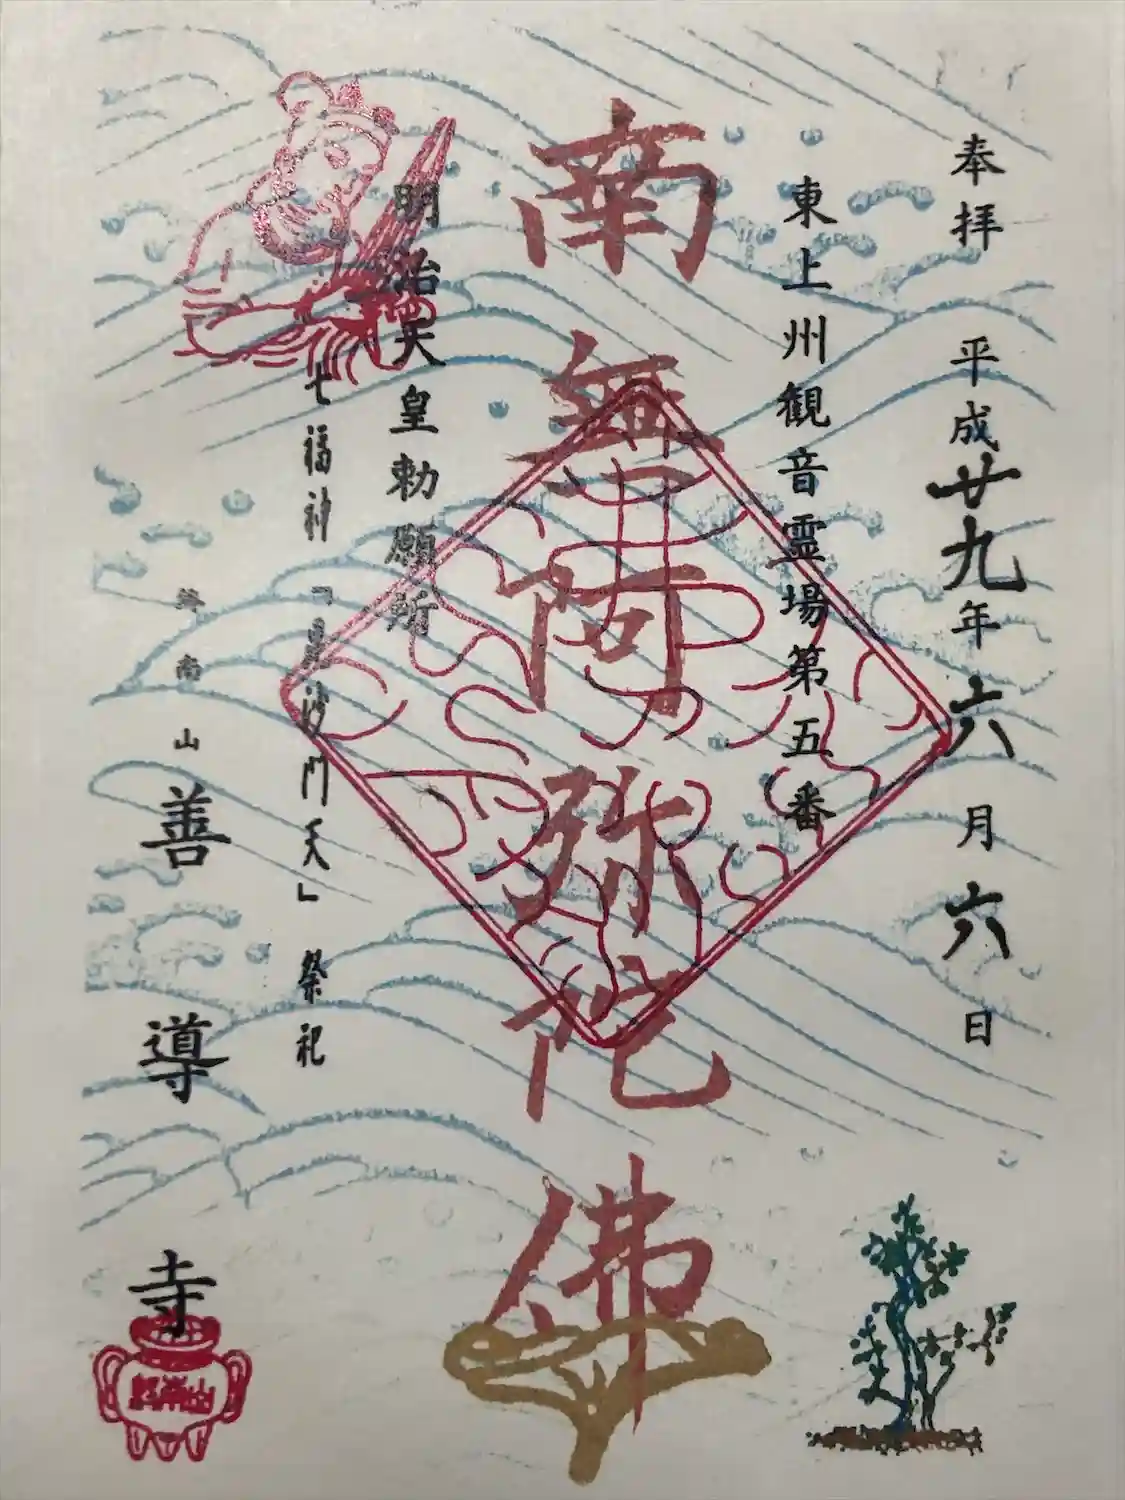 奉拝 平成廿九年六月六日
東上州観音霊場第五番
南無阿弥陀佛
明治天皇勅願所
七福神「毘沙門天」祭祀
終南山 善導寺
終南山